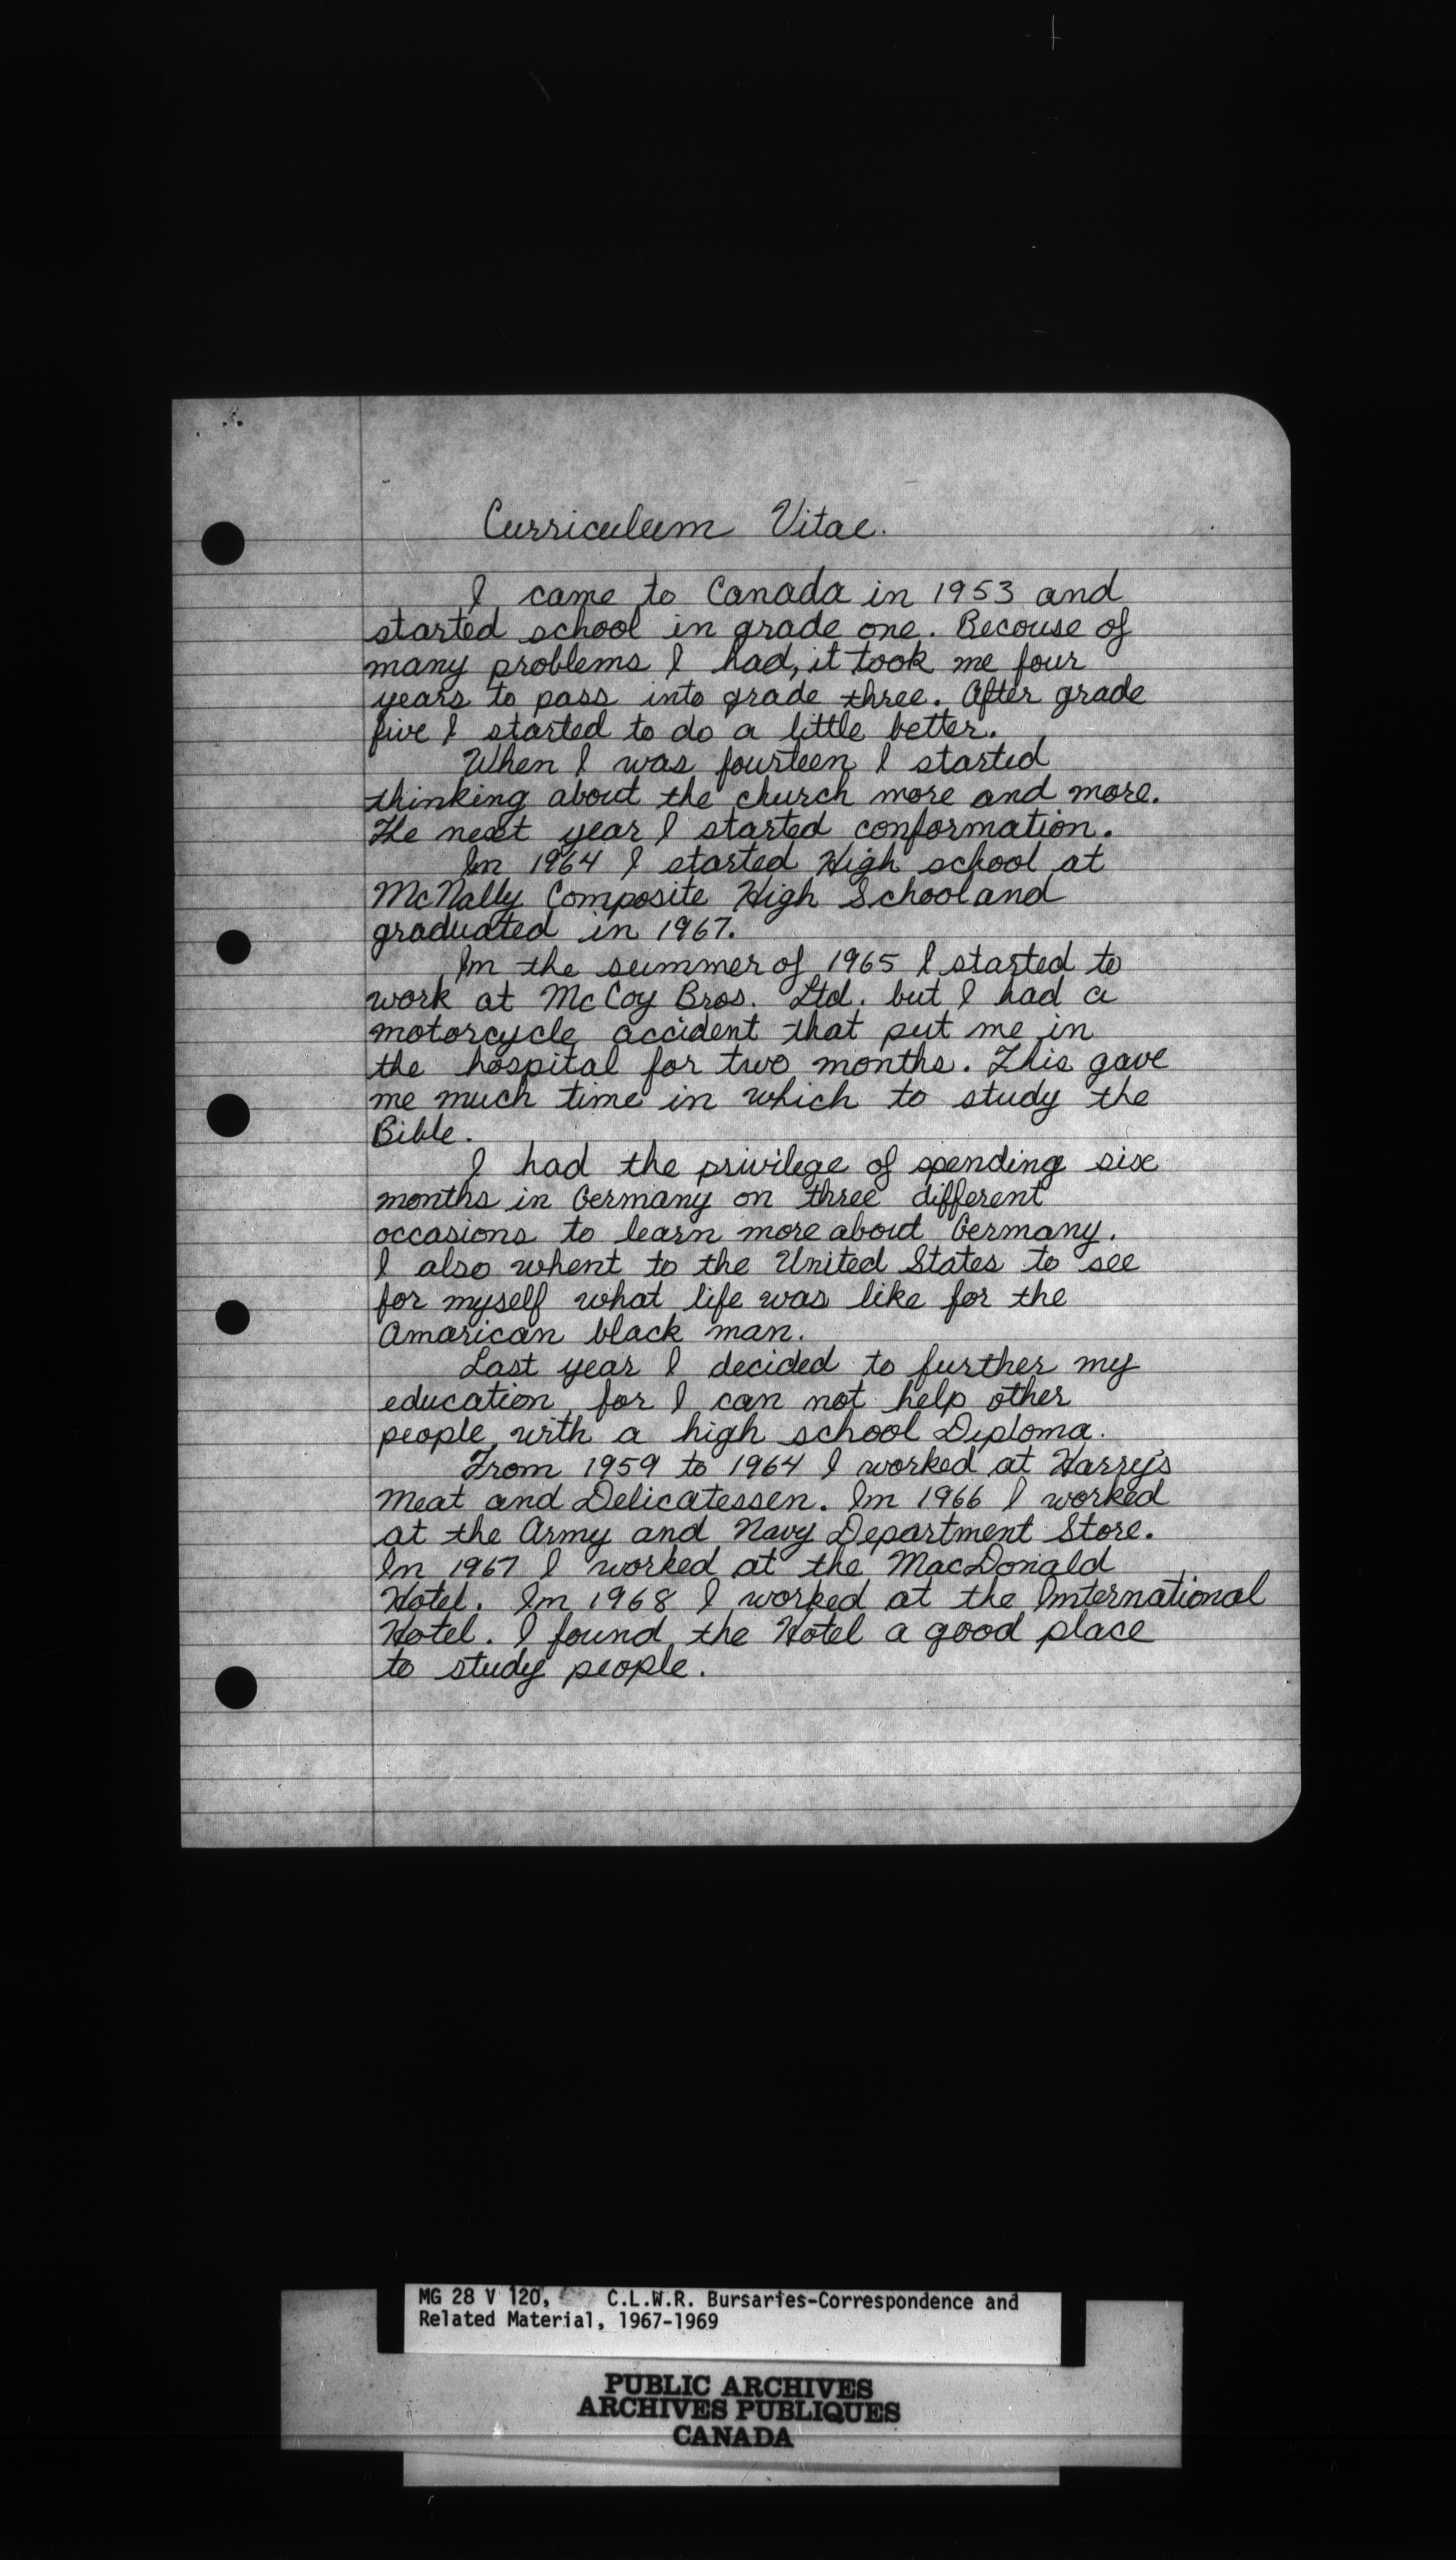 Curriculum Vitae.
I came to Canada in 1953 and
started school in grade one. Becouse of
many problems I had, it took me four
years to pass into grade three. After grade
five I started to do a little better.
When I was fourteen I started
thinking about the church more and more.
The next year I started conformation.
In 1964 I started High school at
McNally Composite High School and
graduated in 1967.
In the summer of 1965 I started to
work at McCoy Bros. Ltd. but I had a
motorcycle accident that put me in
the hospital for two months. This gave
me much time in which to study the
Bible.
I had the privilege of spending six
months in Germany on three different
occasions to learn more about Germany.
I also whent to the United States to see
for myself what life was like for the
Amarican black man.
Last year I decided to further my
education, for I can not help other
people with a high school Diploma.
From 1959 to 1964 I worked at Harry's
Meat and Delicatessen. In 1966 I worked
at the Army and Navy Department Store.
In 1967 I worked at the MacDonald
Hotel. In 1968 I worked at the International
Hotel. I found the Hotel a good place
to study people.
MG 28 V 120, C.L.W.R. Bursaries-Correspondence and
Related Material, 1967-1969
PUBLIC ARCHIVES
ARCHIVES PUBLIQUES
CANADA